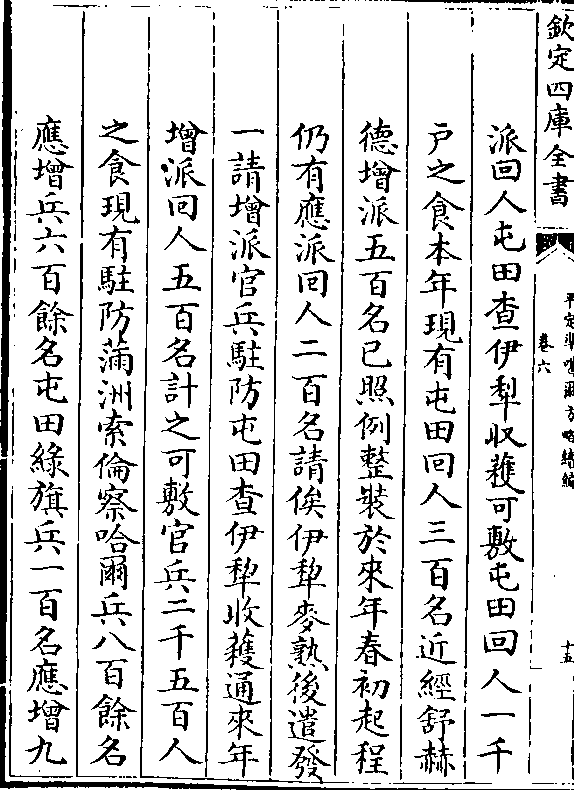 欽定四庫全書
平定準噶爾方略續編
卷六
十五
派回人屯田查伊犂收穫可敷屯田回人一千
戶之食本年現有屯田回人三百名近經舒赫
德增派五百名已照例整裝於來年春初起程
仍有應派回人二百名請俟伊犂麥熟後遣發
一請增派官兵駐防屯田查伊犂收穫通來年
增派回人五百名計之可敷官兵二千五百人
之食現有駐防滿洲索倫察哈爾兵八百餘名
應增兵六百餘名屯田綠旗兵一百名應增九